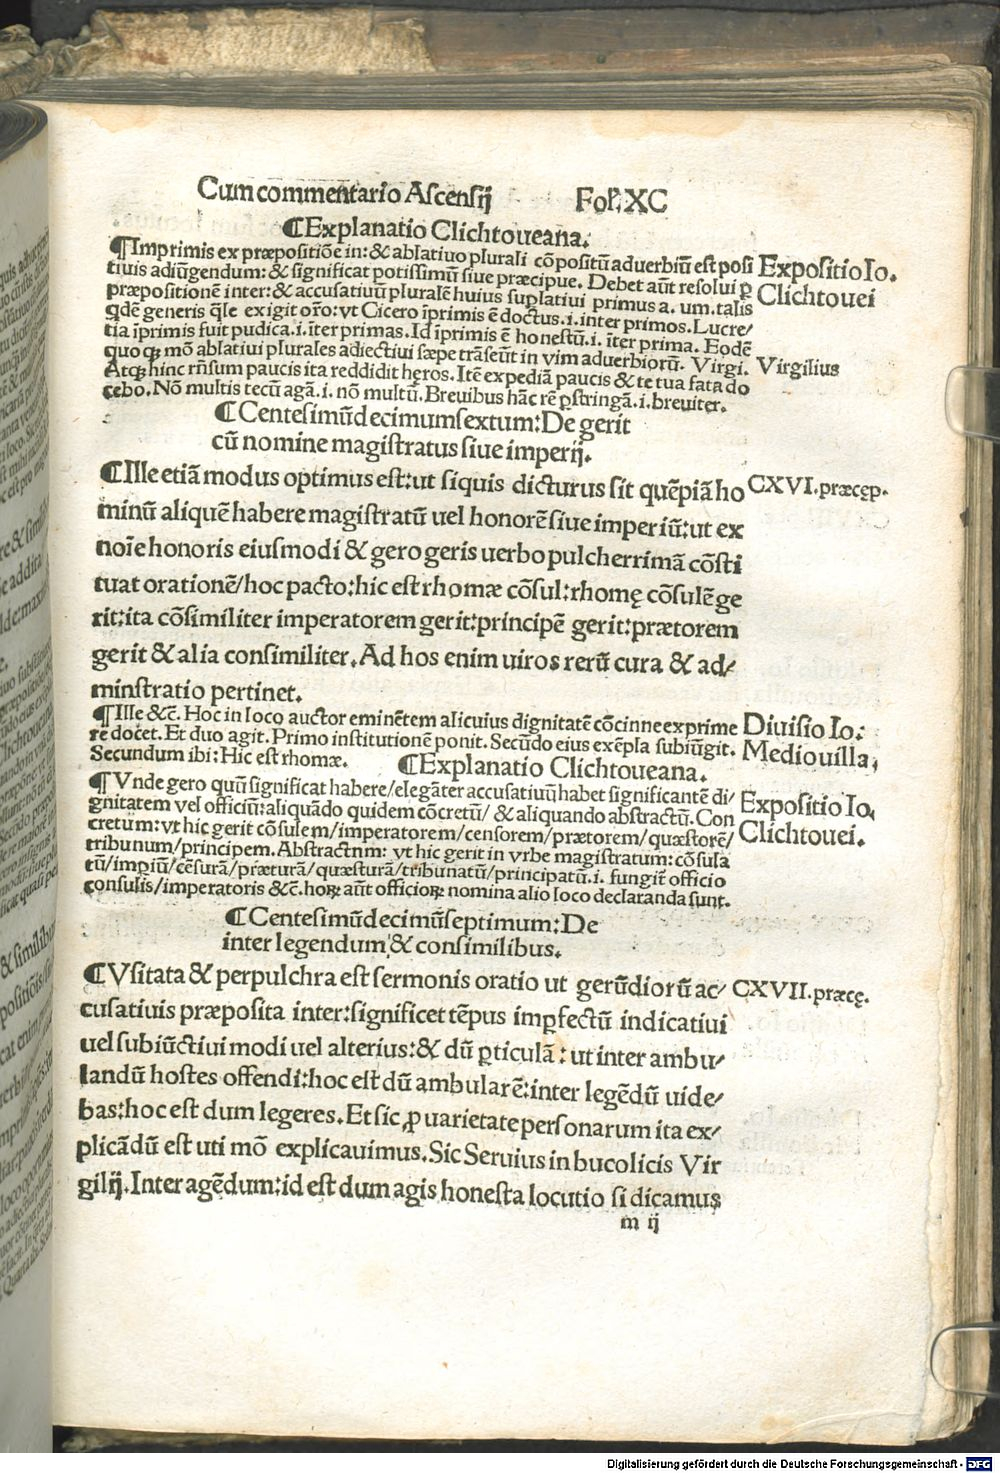 Cum commentario Ascensij Fol. XC
¶Explanatio Clichtoueana.
¶Imprimis ex præpositiõe in: & ablatiuo plurali cõpositũ aduerbiũ est posi
tiuis adiũgendum: & significat potissimũ siue præcipue. Debet aũt resolui ꝑ
præpositionẽ inter: & accusatiuũ pluralẽ huius suꝑlatiui primus a. um. talis
qdẽ generis q̃le exigit or̃o: vt Cicero ĩprimis ẽ doctus .i. inter primos. Lucre/
tia ĩprimis fuit pudica .i. ĩter primas. Id ĩprimis ẽ honestũ .i. ĩter prima. Eodẽ
quoqꝫ mõ ablatiui plurales adiectiui sæpe trãseũt in vim aduerbiorũ. Virgi.
Atqꝫ hinc rñsum paucis ita reddidit hęros. Itẽ expediã paucis & te tua fata do
cebo. Nõ multis tecũ agã .i. nõ multũ. Breuibus hãc rẽ ꝑstringã .i. breuiter.
Expositio Io.
Clichtouei
Virgilius
¶Centesimũdecimumsextum: De gerit
cũ nomine magistratus siue imperij.
¶Ille etiã modus optimus est: ut siquis dicturus sit quẽpiã ho
minũ aliquẽ habere magistratũ uel honorẽ siue imperiũ: ut ex
noĩe honoris eiusmodi & gero geris uerbo pulcherrimã cõsti
tuat orationẽ/ hoc pacto: hic est rhomæ cõsul: rhomę cõsulẽ ge
rit: ita cõsimiliter imperatorem gerit: principẽ gerit: prætorem
gerit & alia consimiliter. Ad hos enim uiros rerũ cura & ad/
minstratio pertinet.
CXVI. præcęp.
¶Ille &c̃. Hoc in loco auctor eminẽtem alicuius dignitatẽ cõcinne exprime
re docet. Et duo agit. Primo institutionẽ ponit. Secũdo eius exẽpla subiũgit.
Secundum ibi: Hic est rhomæ. ¶Explanatio Clichtoueana.
Diuisio Io:
Mediouilla,
¶Vnde gero quũ significat habere/ elegãter accusatiuũ habet significantẽ di/
gnitatem vel officiũ: aliquãdo quidem cõcretũ/ & aliquando abstractũ. Con
cretum: vt hic gerit cõsulem/ imperatorem/ censorem/ prætorem/ quæstorẽ/
tribunum/ principem. Abstractnm: vt hic gerit in vrbe magistratum: cõsula
tũ/ impiũ/ cẽsurã/ præturã/ quæsturã/ tribunatũ/ principatũ .i. fungit̃ officio
consulis/ imperatoris &c̃. hoꝝ aũt officioꝝ nomina alio loco declaranda sunt.
Expositio Io,
Clichtouei.
¶Centesimũdecimũseptimum: De
inter legendum & consimilibus.
¶Vsitata & perpulchra est sermonis oratio ut gerũdiorũ ac/
cusatiuis præposita inter: significet tẽpus imꝑfectũ indicatiui
uel subiũctiui modi uel alterius: & dũ ꝑticulã: ut inter ambu/
landũ hostes offendi: hoc est dũ ambularẽ: inter legẽdũ uide/
bas: hoc est dum legeres. Et sic ꝓ uarietate personarum ita ex/
plicãdũ est uti mõ explicauimus. Sic Seruius in bucolicis Vir
gilij. Inter agẽdum: id est dum agis honesta locutio si dicamus
CXVII. præcę.
m ij
Digitalisierung gefördert durch die Deutsche Forschungsgemeinschaft - DFG